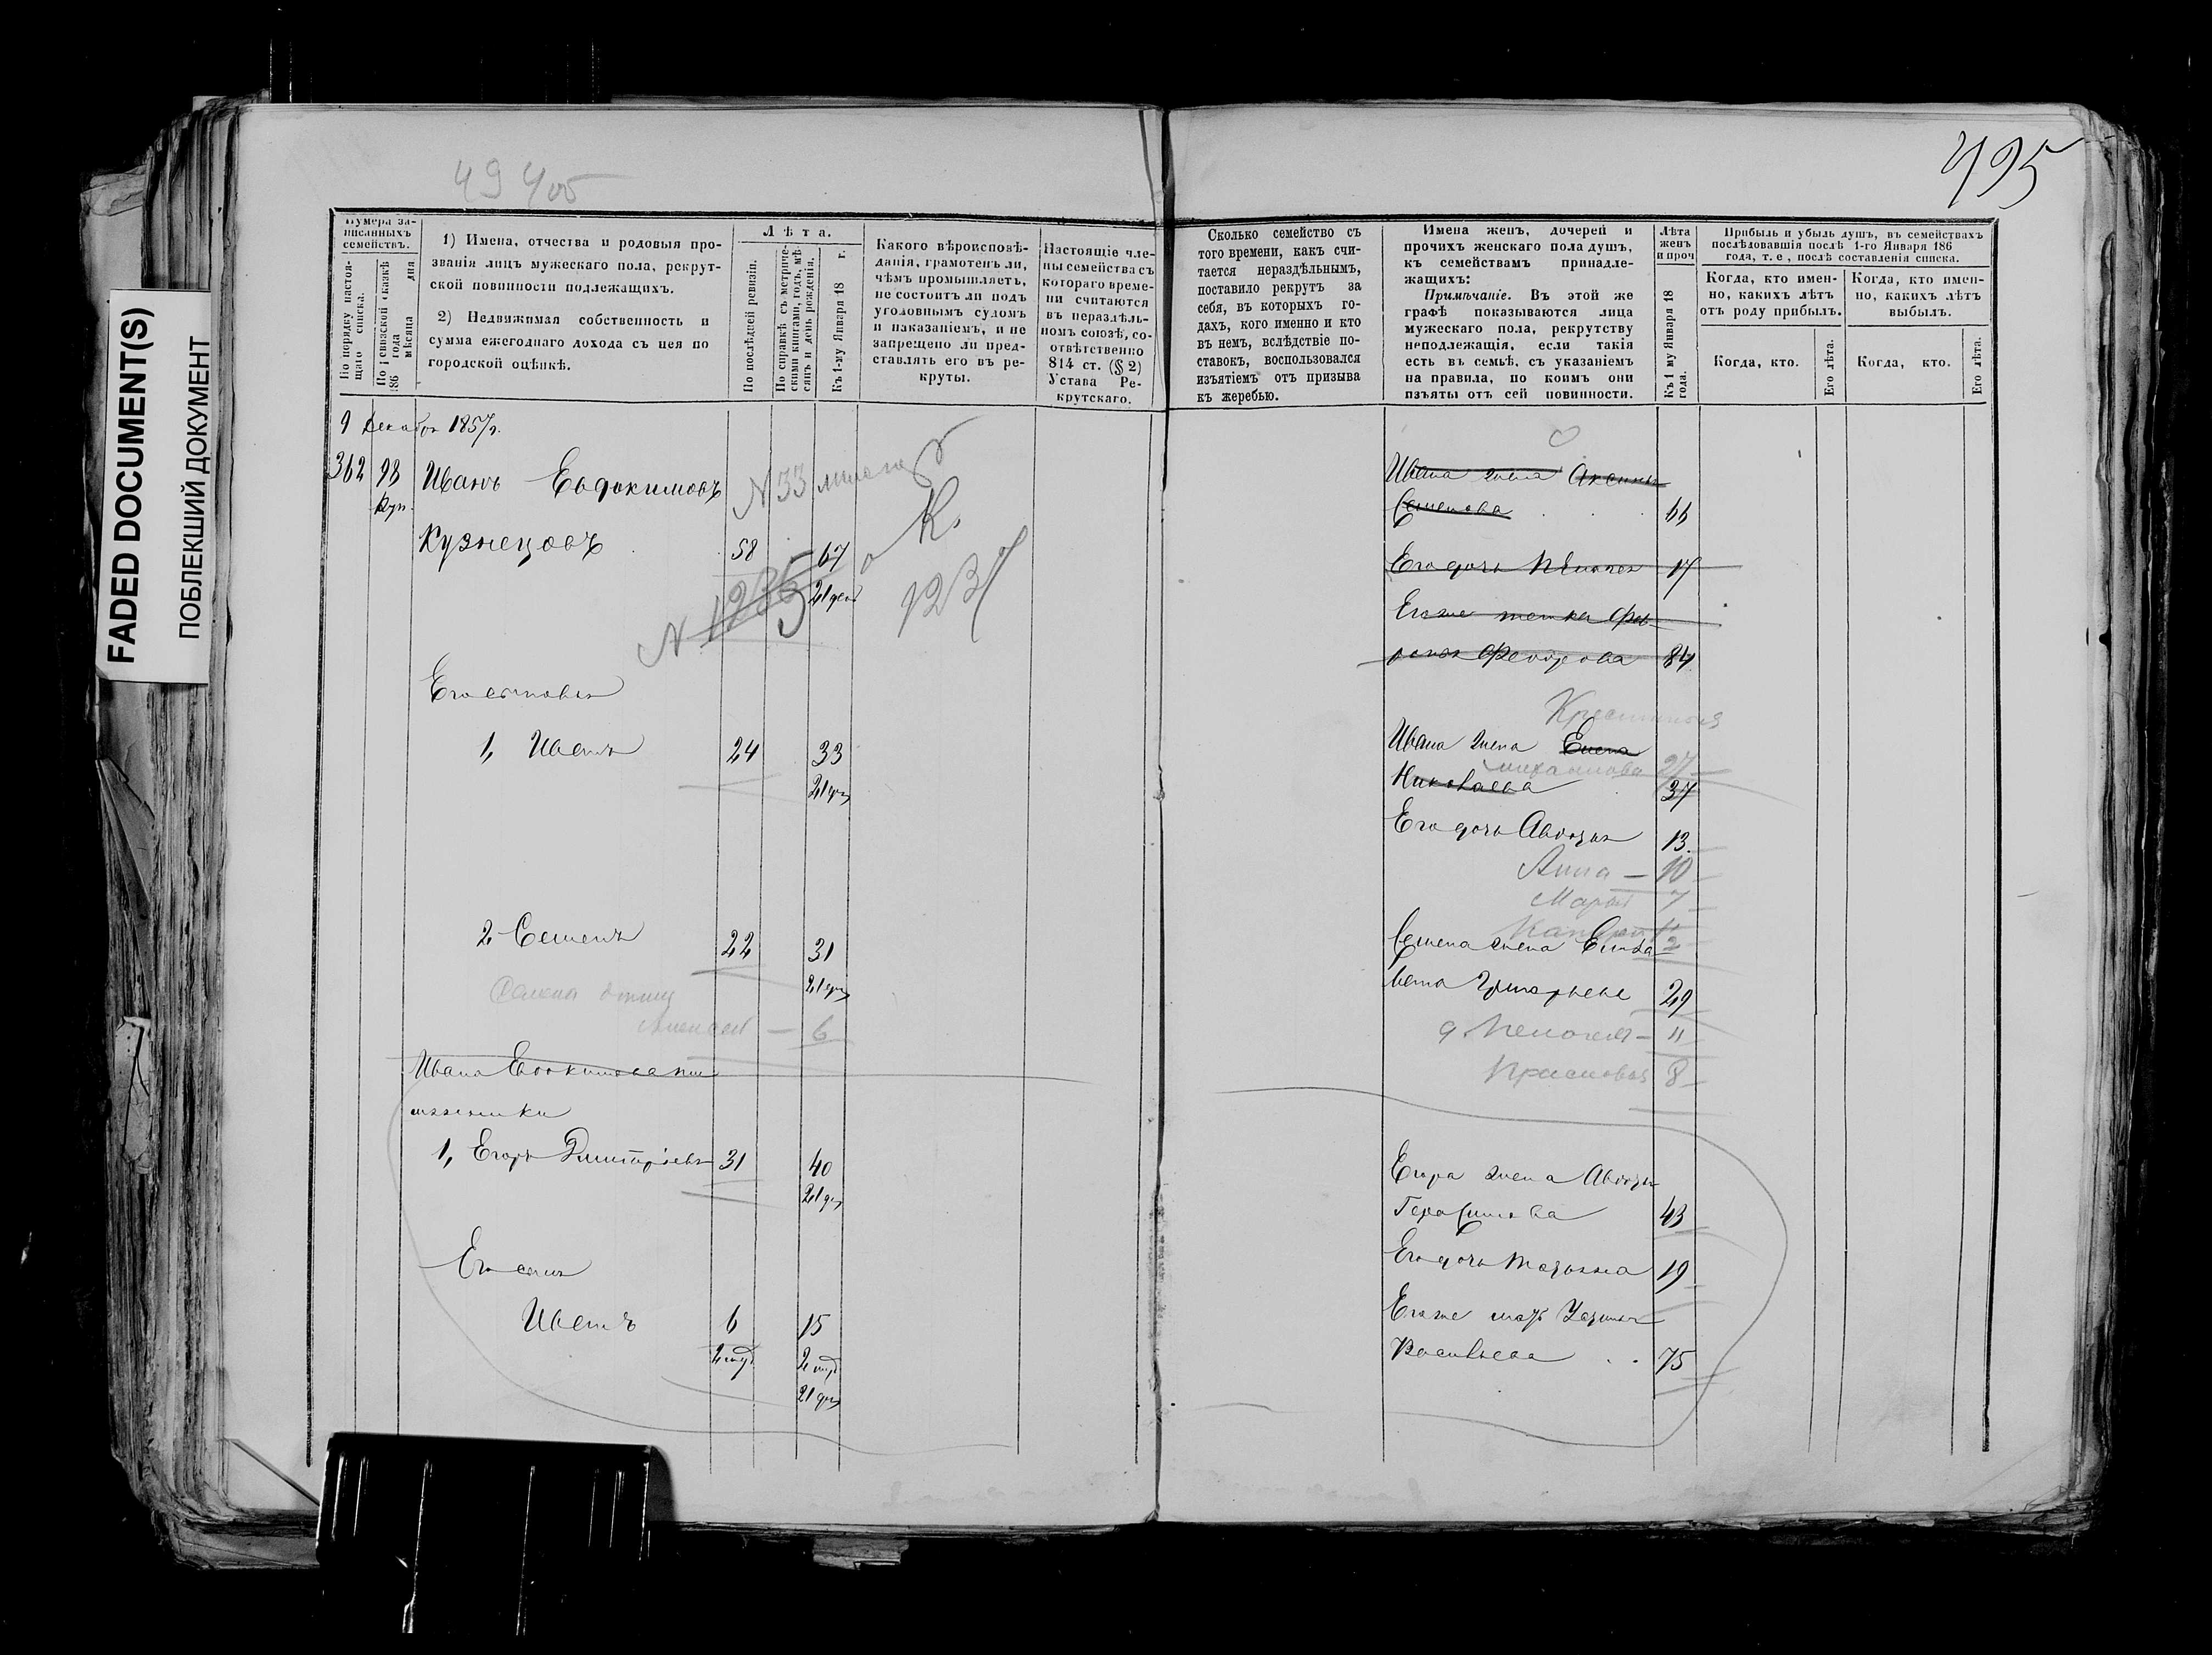 FADED DOCUMENT(S)
ПОБЛЕКШИЙ ДОКУМЕНТ
495
Нумера за-
писанныхъ
семействъ.
По порядку настоя-
щаго списка.
По ревизской сказкѣ
186 года
мѣсяца дня
1) Имена, отчества и родовыя про-
званія лицъ мужескаго пола, рекрут-
ской повинности подлежащихъ.
2) Недвижимая собственность и
сумма ежегоднаго дохода съ нея по
городской оцѣнкѣ.
Лѣта.
По послѣдней ревизіи.
По справкѣ съ метриче-
скими книгами, годъ, мѣ-
сяцъ и день рожденія.
Къ 1-му Января 18 г.
Какого вѣроисповѣ-
данія, грамотенъ ли,
чѣмъ промышляетъ,
не состоитъ ли подъ
уголовнымъ судомъ
и наказаніемъ, и не
запрещено ли пред-
ставлять его въ ре-
круты.
Настоящіе чле-
ны семейства съ
котораго време-
ни считаются
въ нераздѣль-
номъ союзѣ, со-
отвѣтственно
814 ст. (§ 2)
Устава Ре-
крутскаго.
Сколько семейство съ
того времени, какъ счи-
тается нераздѣльнымъ,
поставило рекрутъ за
себя, въ которыхъ го-
дахъ, кого именно и кто
въ немъ, вслѣдствіе по-
ставокъ, воспользовался
изъятіемъ отъ призыва
къ жеребью.
Имена женъ, дочерей и
прочихъ женскаго пола душъ,
къ семействамъ принадле-
жащихъ:
Примѣчаніе. Въ этой же
графѣ показываются лица
мужескаго пола, рекрутству
неподлежащія, если такія
есть въ семьѣ, съ указаніемъ
на правила, по коимъ они
изъяты отъ сей повинности.
Лѣта
женъ
и проч
Къ 1 му Января 18
года.
Прибыль и убыль душъ, въ семействахъ
послѣдовавшія послѣ 1-го Января 186
года, т. е, послѣ составленія списка.
Когда, кто имен-
но, какихъ лѣтъ
отъ роду прибылъ.
Когда, кто имен-
но, какихъ лѣтъ
выбылъ.
Когда, кто.
Его лѣта.
Когда, кто.
Его лѣта.
9 Декабря 1857 г.
362 98 Иванъ Евдокимовъ
N 33
К.
Кузнецовъ 58 67
N 1235
1237
Его сыновья
1, Иванъ 24 33
2 Семенъ 22 31
6
Ивана Евдокимова
племянники
1, Егоръ Дмитріевъ 31 40
Его сынъ
Иванъ 6 15
Ивана жена Аксинья
Семенова 66
Его дочь Пелагея 17
Его же тетка
Федорова 84
Ивана жена Елена
27
Николаева 37
Его дочь Авдотья 13
Анна — 10
Марья 7
Семена жена Елиза
2
вета Григорьева 29
д. Пелагея — 11
Прасковья 8
Егора жена Авдотья
Герасимова 43
Его дочь Татьяна 19
Его же мать
Васильева 75